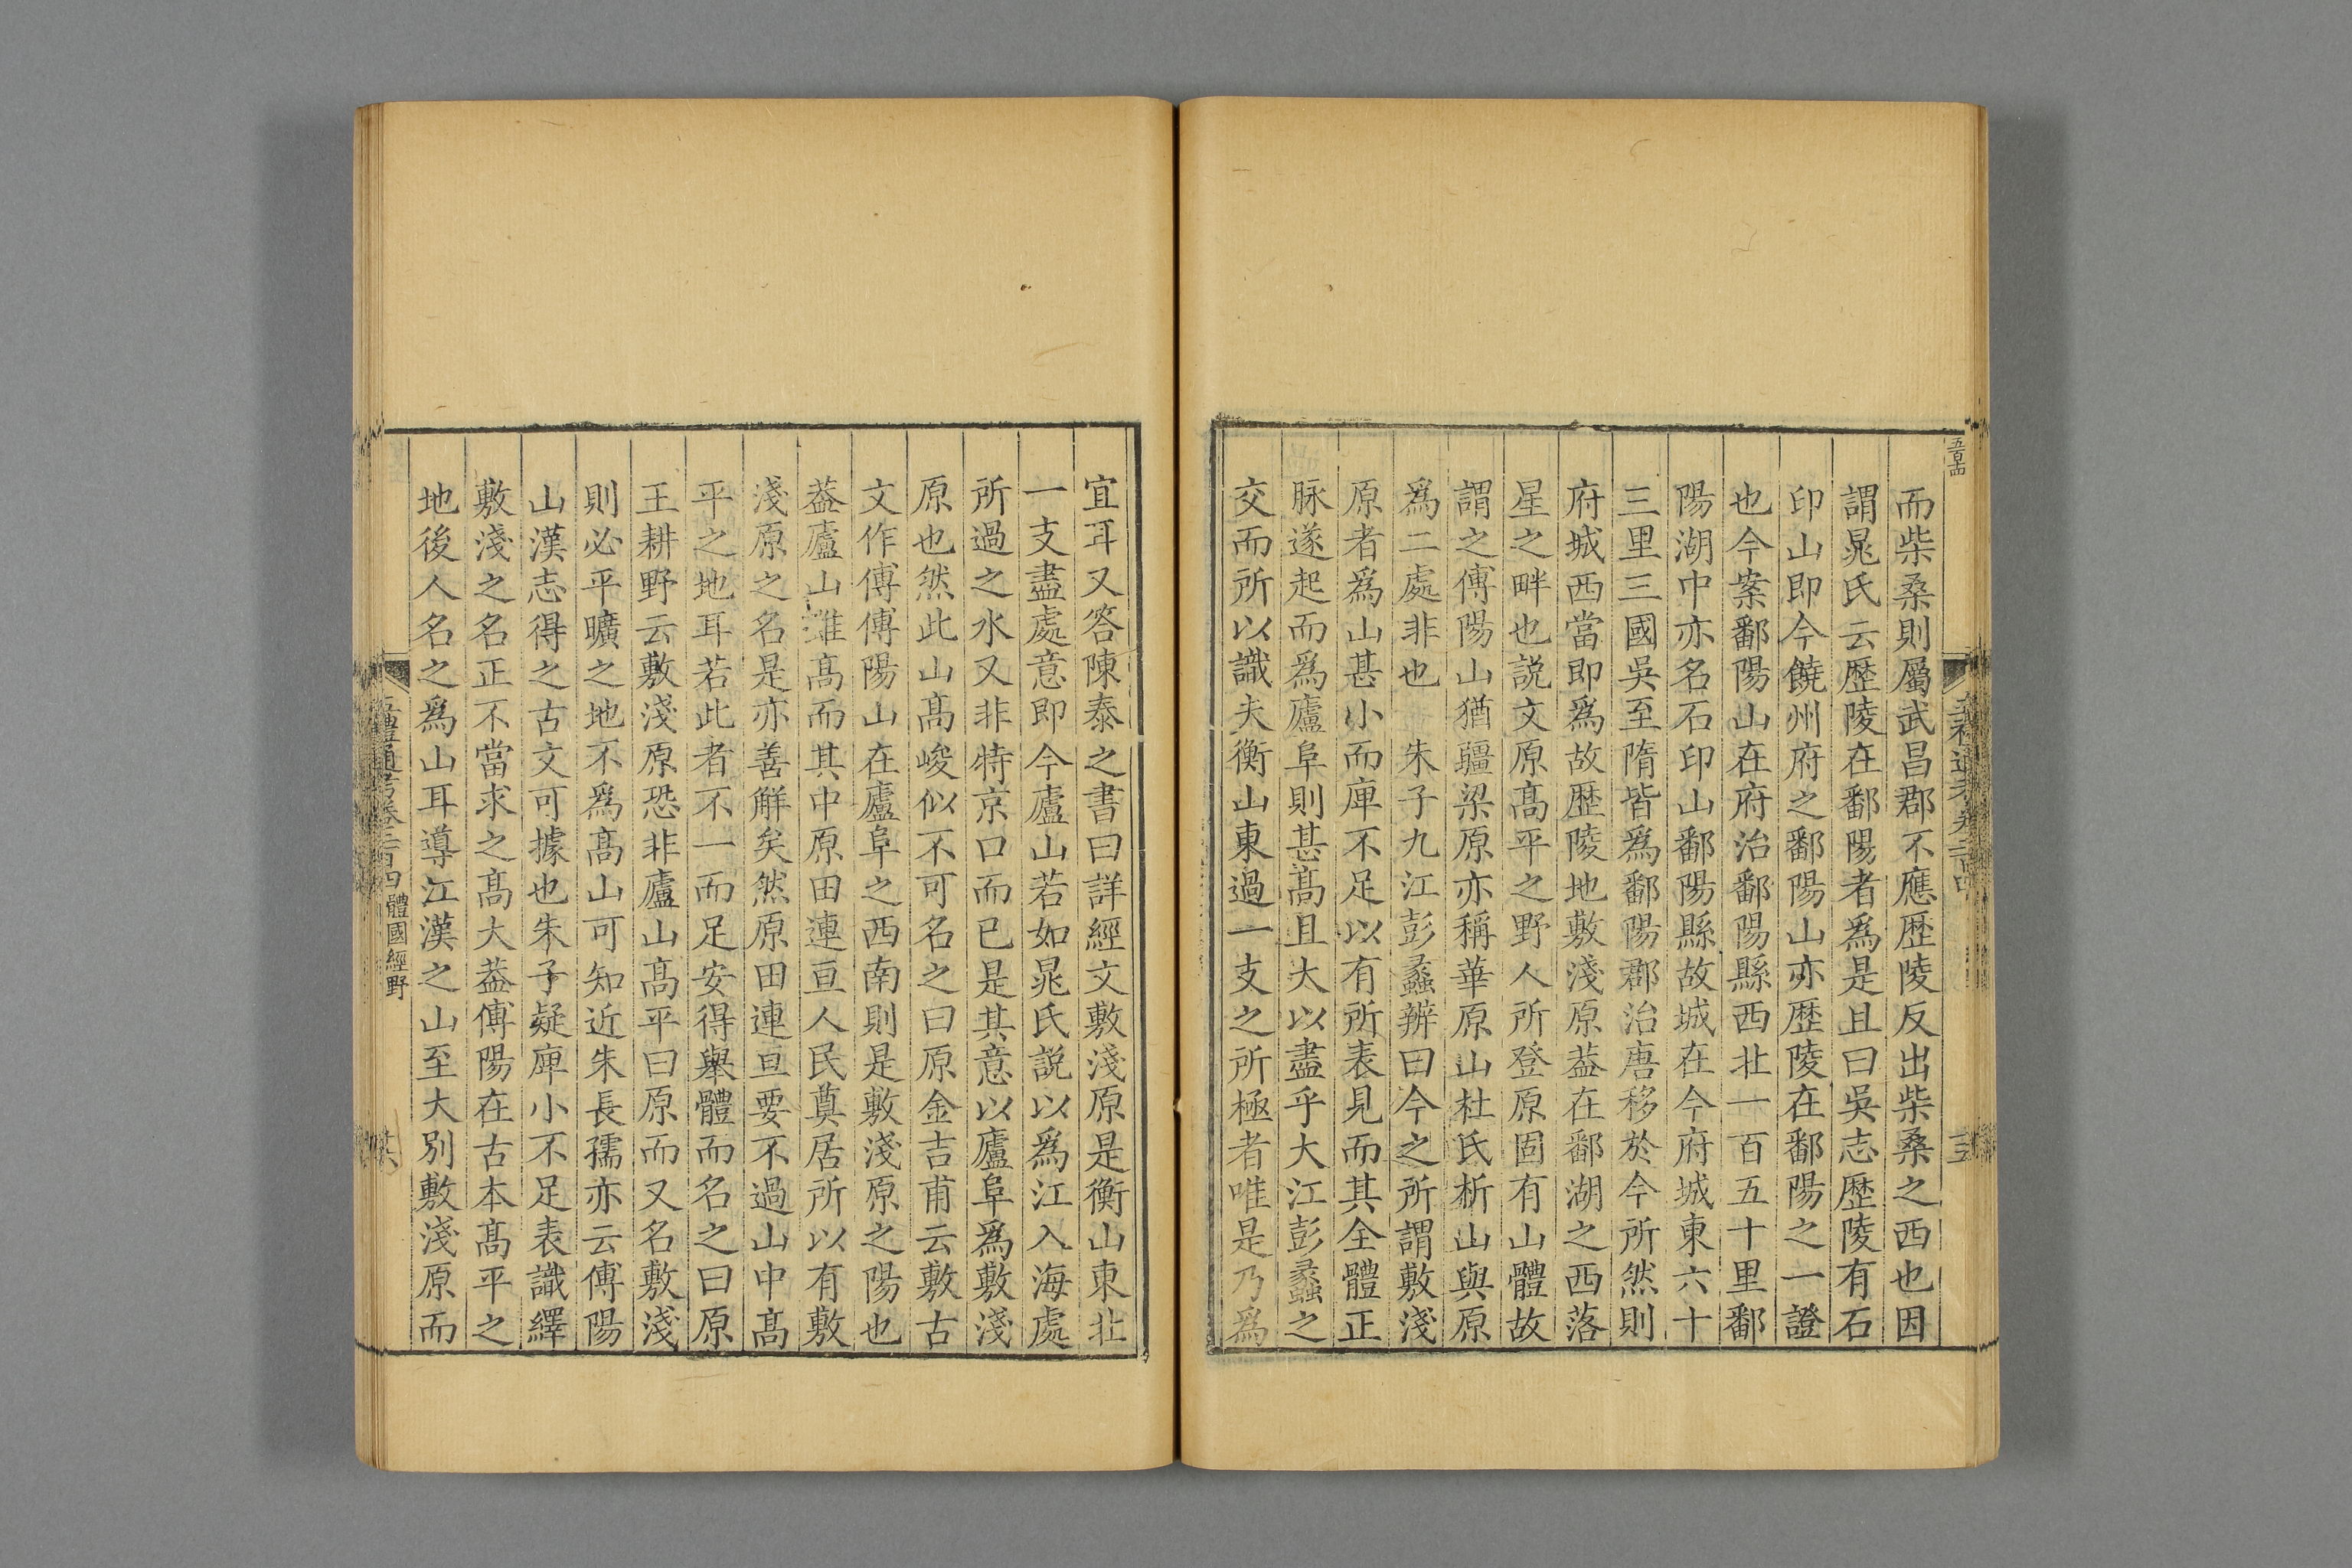 而柴桑則屬武昌郡不應歴陵反出柴桑之西也因
謂晁氏云歴陵在鄱陽者爲是且曰吳志歴陵有石
印山即今饒州府之鄱陽山亦歴陵在鄱陽之一證
也今案鄱陽山在府治鄱陽縣西北一百五十里鄱
陽湖中亦名石印山鄱陽縣故城在今府城東六十
三里三國吳至隋皆爲鄱陽郡治唐移於今所然則
府城西當即爲故歴陵地敷淺原葢在鄱湖之西落
星之畔也説文原髙平之野人所登原固有山體故
謂之傅陽山猶疆梁原亦稱華原山杜氏析山與原
爲二處非也　朱子九江彭蠡辨曰今之所謂敷淺
原者爲山甚小而庳不足以有所表見而其全體正
脉遂起而爲廬阜則甚髙且大以盡乎大江彭蠡之
交而所以識夫衡山東過一支之所極者唯是乃爲
宜耳又答陳泰之書曰詳經文敷淺原是衡山東北
一支盡處意即今廬山若如晁氏説以爲江入海處
所過之水又非特京口而已是其意以廬阜爲敷淺
原也然此山髙峻似不可名之曰原金吉甫云敷古
文作傅傅陽山在廬阜之西南則是敷淺原之陽也
葢廬山雖髙而其中原田連亘人民奠居所以有敷
淺原之名是亦善解矣然原田連亘要不過山中髙
平之地耳若此者不一而足安得舉體而名之曰原
王耕野云敷淺原恐非廬山髙平曰原而又名敷淺
則必平曠之地不爲髙山可知近朱長孺亦云傅陽
山漢志得之古文可據也朱子疑庳小不足表識繹
敷淺之名正不當求之髙大葢傅陽在古本髙平之
地後人名之爲山耳導江漢之山至大別敷淺原而
體國經野